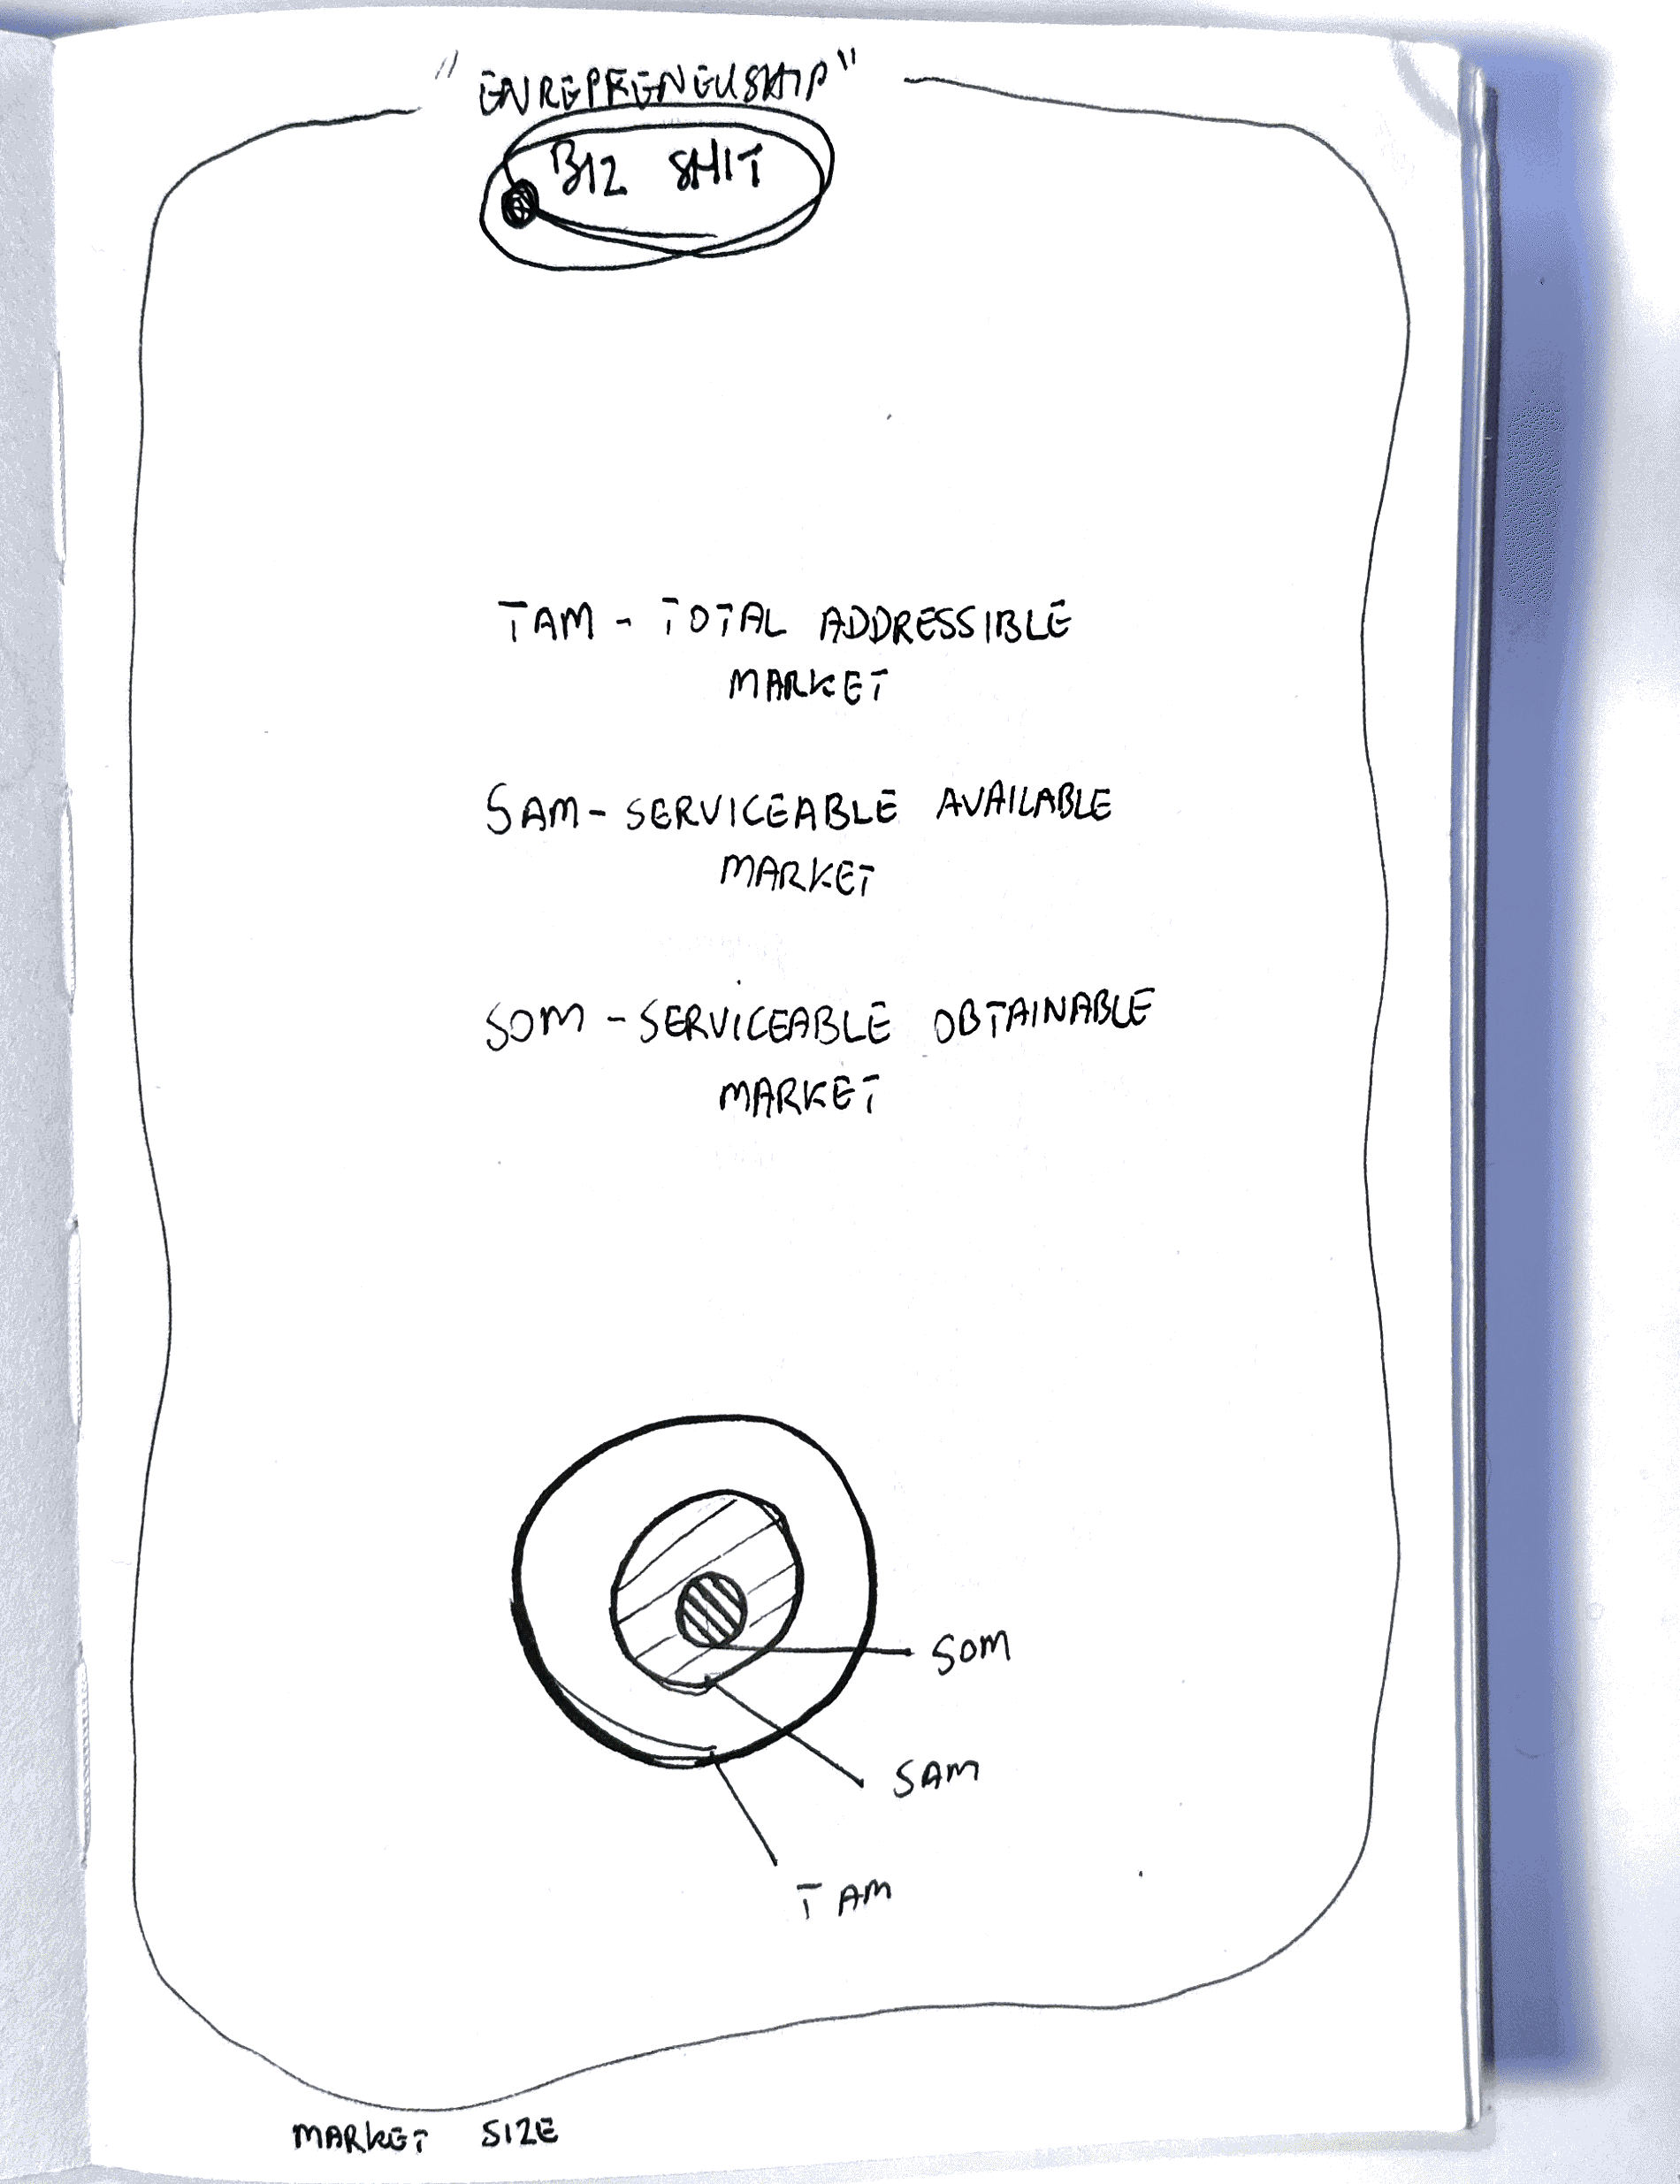 "ENREPRENEUSHIP"
BIZ SHIT
TAM - TOTAL ADDRESSIBLE
MARKET
SAM - SERVICEABLE AVAILABLE
MARKET
SOM - SERVICEABLE OBTAINABLE
MARKET
SOM
SAM
TAM
MARKET SIZE